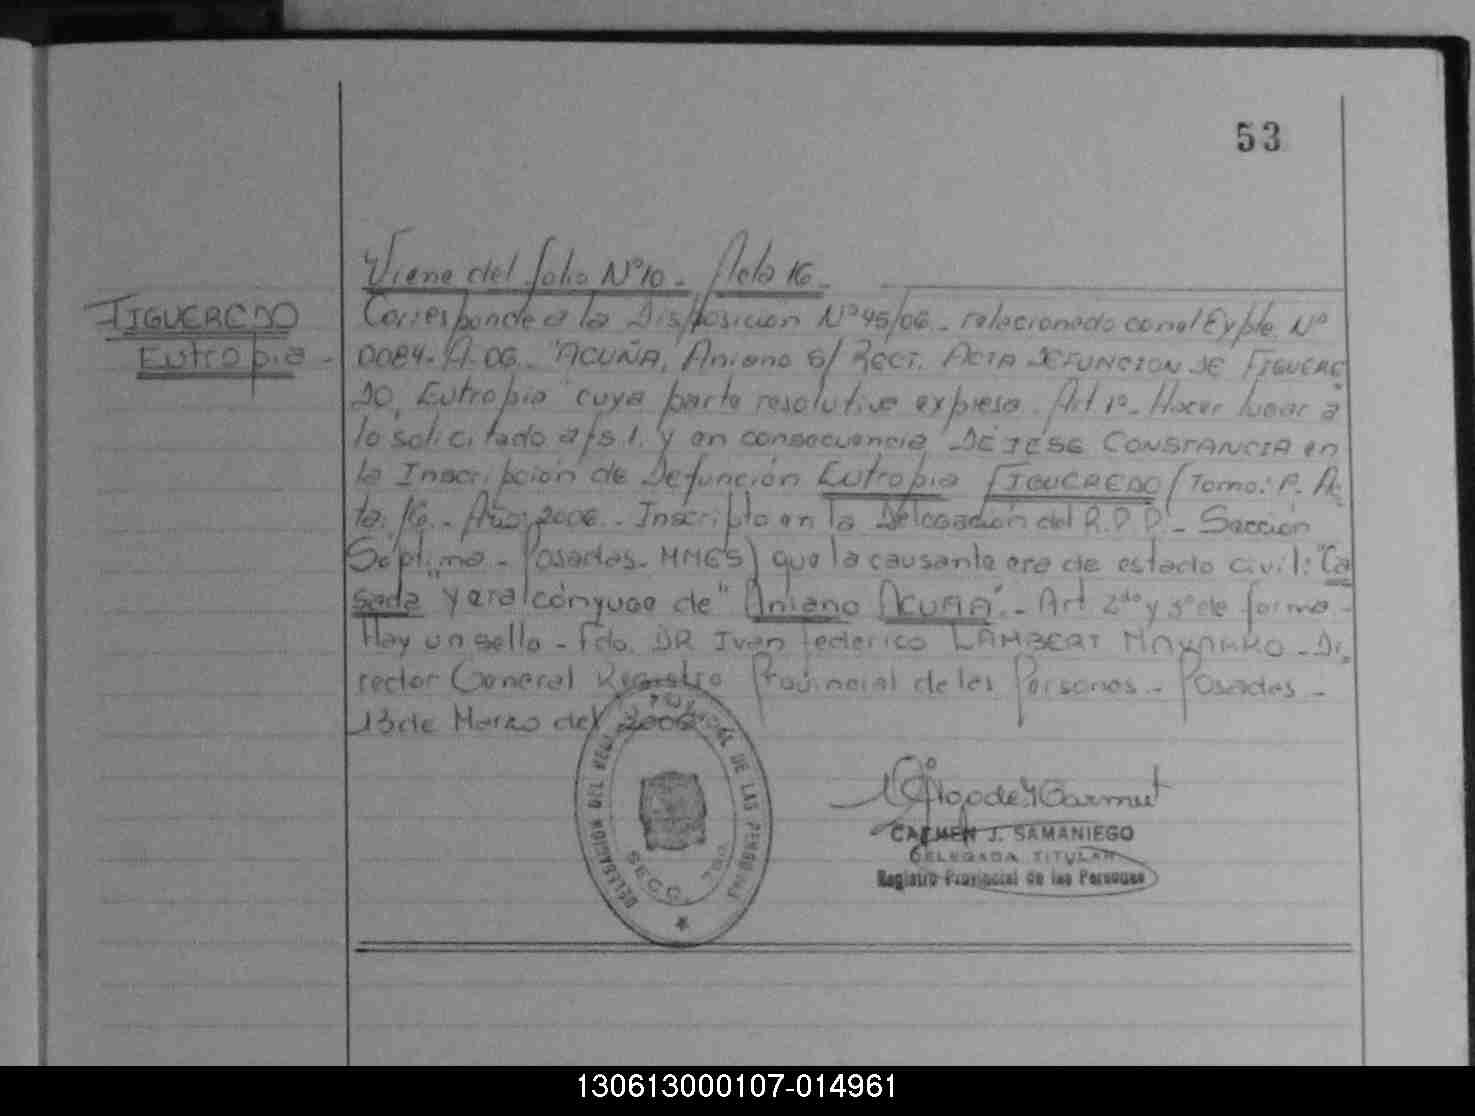 53
Viene del folio Nº 10 - Acta 16.-
FIGUEREDO
Eutropia -
Corresponde a la Disposición Nº 45/06 - relacionado con el Expte. Nº
0084-A-06. "ACUÑA, Aniano S/ RECT. ACTA DEFUNCION DE FIGUERE
DO, Eutropia" cuya parte resolutiva expresa. Art 1º - Hacer lugar a
lo solicitado a fs 1. y en consecuencia DÉJESE CONSTANCIA en
la Inscripción de Defunción Eutropia FIGUEREDO (Tomo: P. Ac-
ta: 16.- Año: 2006.- Inscripto en la Delegación del R.P.P.- Sección
Séptima - Posadas - MNES) que la causante era de estado civil: "Ca
sada" y era cónyuge de "Aniano ACUÑA".- Art 2do y 3º de forma -
Hay un sello - Fdo. DR Ivan Federico LAMBERT NAVARRO - Di-
rector General Registro Provincial de las Personas - Posadas -
13 de Marzo del 2006
DELEGACION DEL REGISTRO PROVINCIAL DE LAS PERSONAS
SECC. 7MA.
CARMEN J. SAMANIEGO
DELEGADA TITULAR
Registro Provincial de las Personas
130613000107-014961